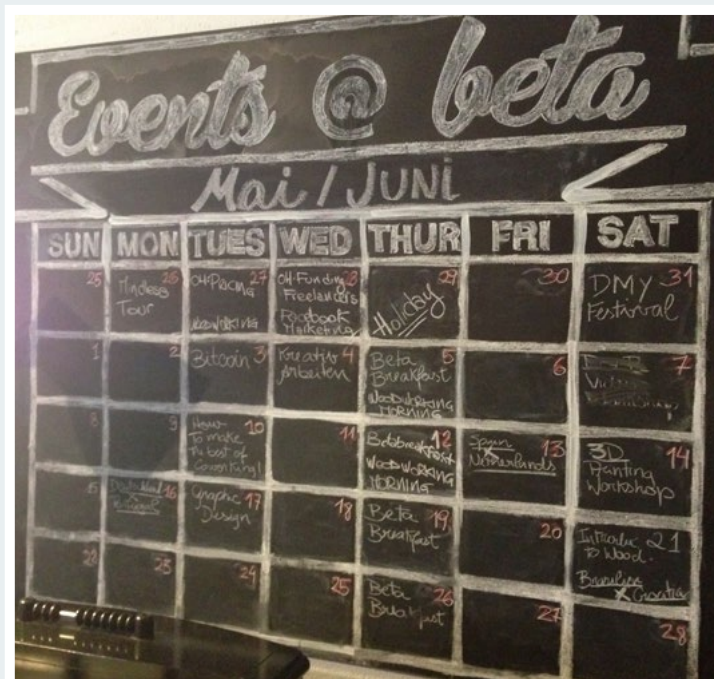 Events @ beta
Mai / JUNI
SUN MON TUES WED THUR FRI SAT
25
26
Mindless
Tour
27
OH-Pricing
WOODWORKING
28
OH-Funding
Freelancers
Facebook
Marketing
29
Holiday
30
31
DMY
Festinval
1
2
3
Bitcoin
4
Kreativ
Arbeiten
5
Beta
Breakfast
WOODWORKING
MORNING
6
7
8
9
10
How
To make
the best of
Coworking!
11
12
Betabreakfast
WOODWORKING
MORNING
13
Spain
X
Netherlands
14
3D
Printing
Workshop
15
16
17
Graphic
Design
18
19
Beta
Breakfast
20
21
to Wood.
X Croatia
22
23
24
25
26
Beta
Breakfast
27
28